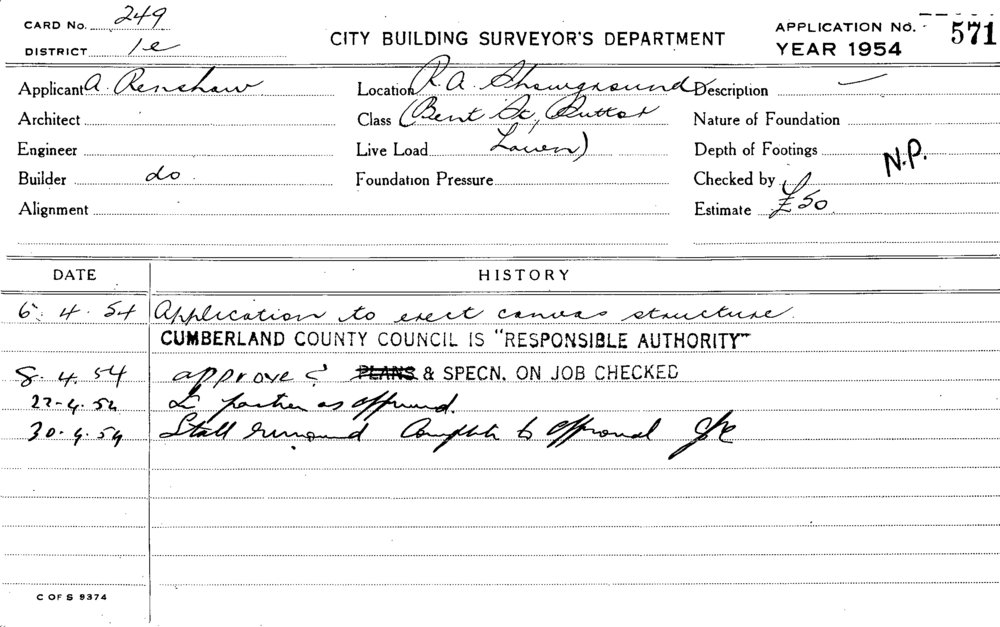 CARD No. 249
DISTRICT 1e
CITY BUILDING SURVEYOR'S DEPARTMENT
APPLICATION No. 571
YEAR 1954
Applicant A. Renshaw
Location R.A. Showground
Description —
Architect
Class (Bent St,
Nature of Foundation
Engineer
Live Load Lawn)
Depth of Footings
N.P.
Builder do
Foundation Pressure
Checked by
Alignment
Estimate £50
DATE HISTORY
6.4.54 Application to erect canvas structure.
CUMBERLAND COUNTY COUNCIL IS "RESPONSIBLE AUTHORITY"
8.4.54 approve PLANS & SPECN. ON JOB CHECKED
22-4.54 In position as approved.
30.4.54 Stall removed Complete to approval
C OF S 9374